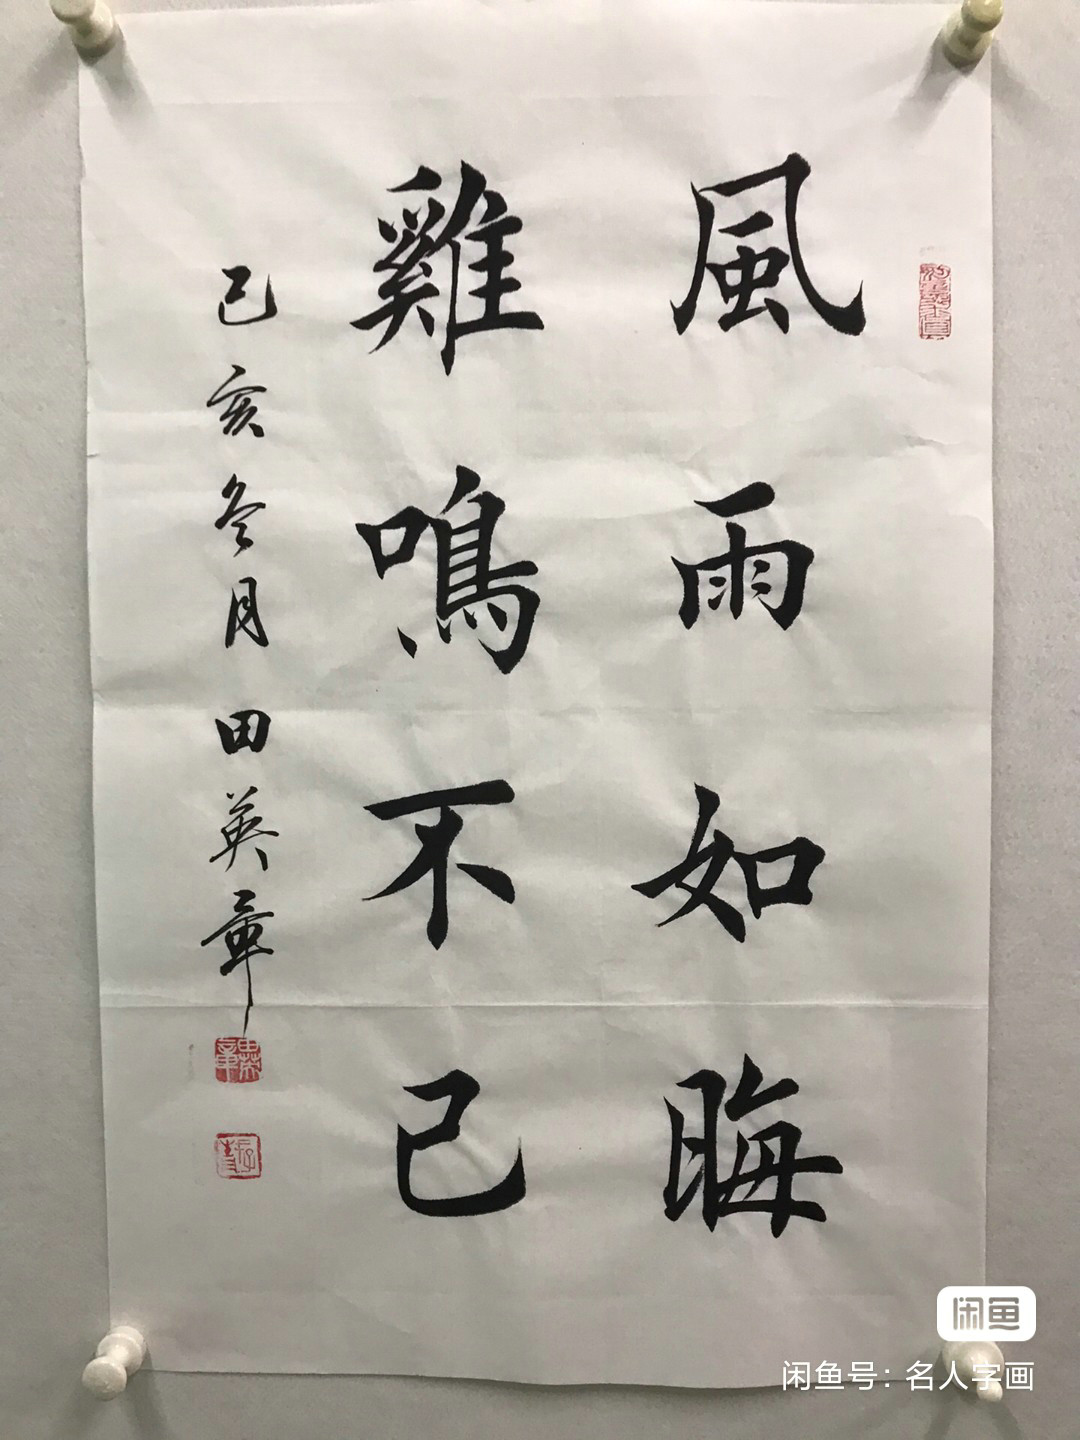 風雨如晦
雞鳴不已
己亥冬月 田英章
闲鱼
闲鱼号：名人字画